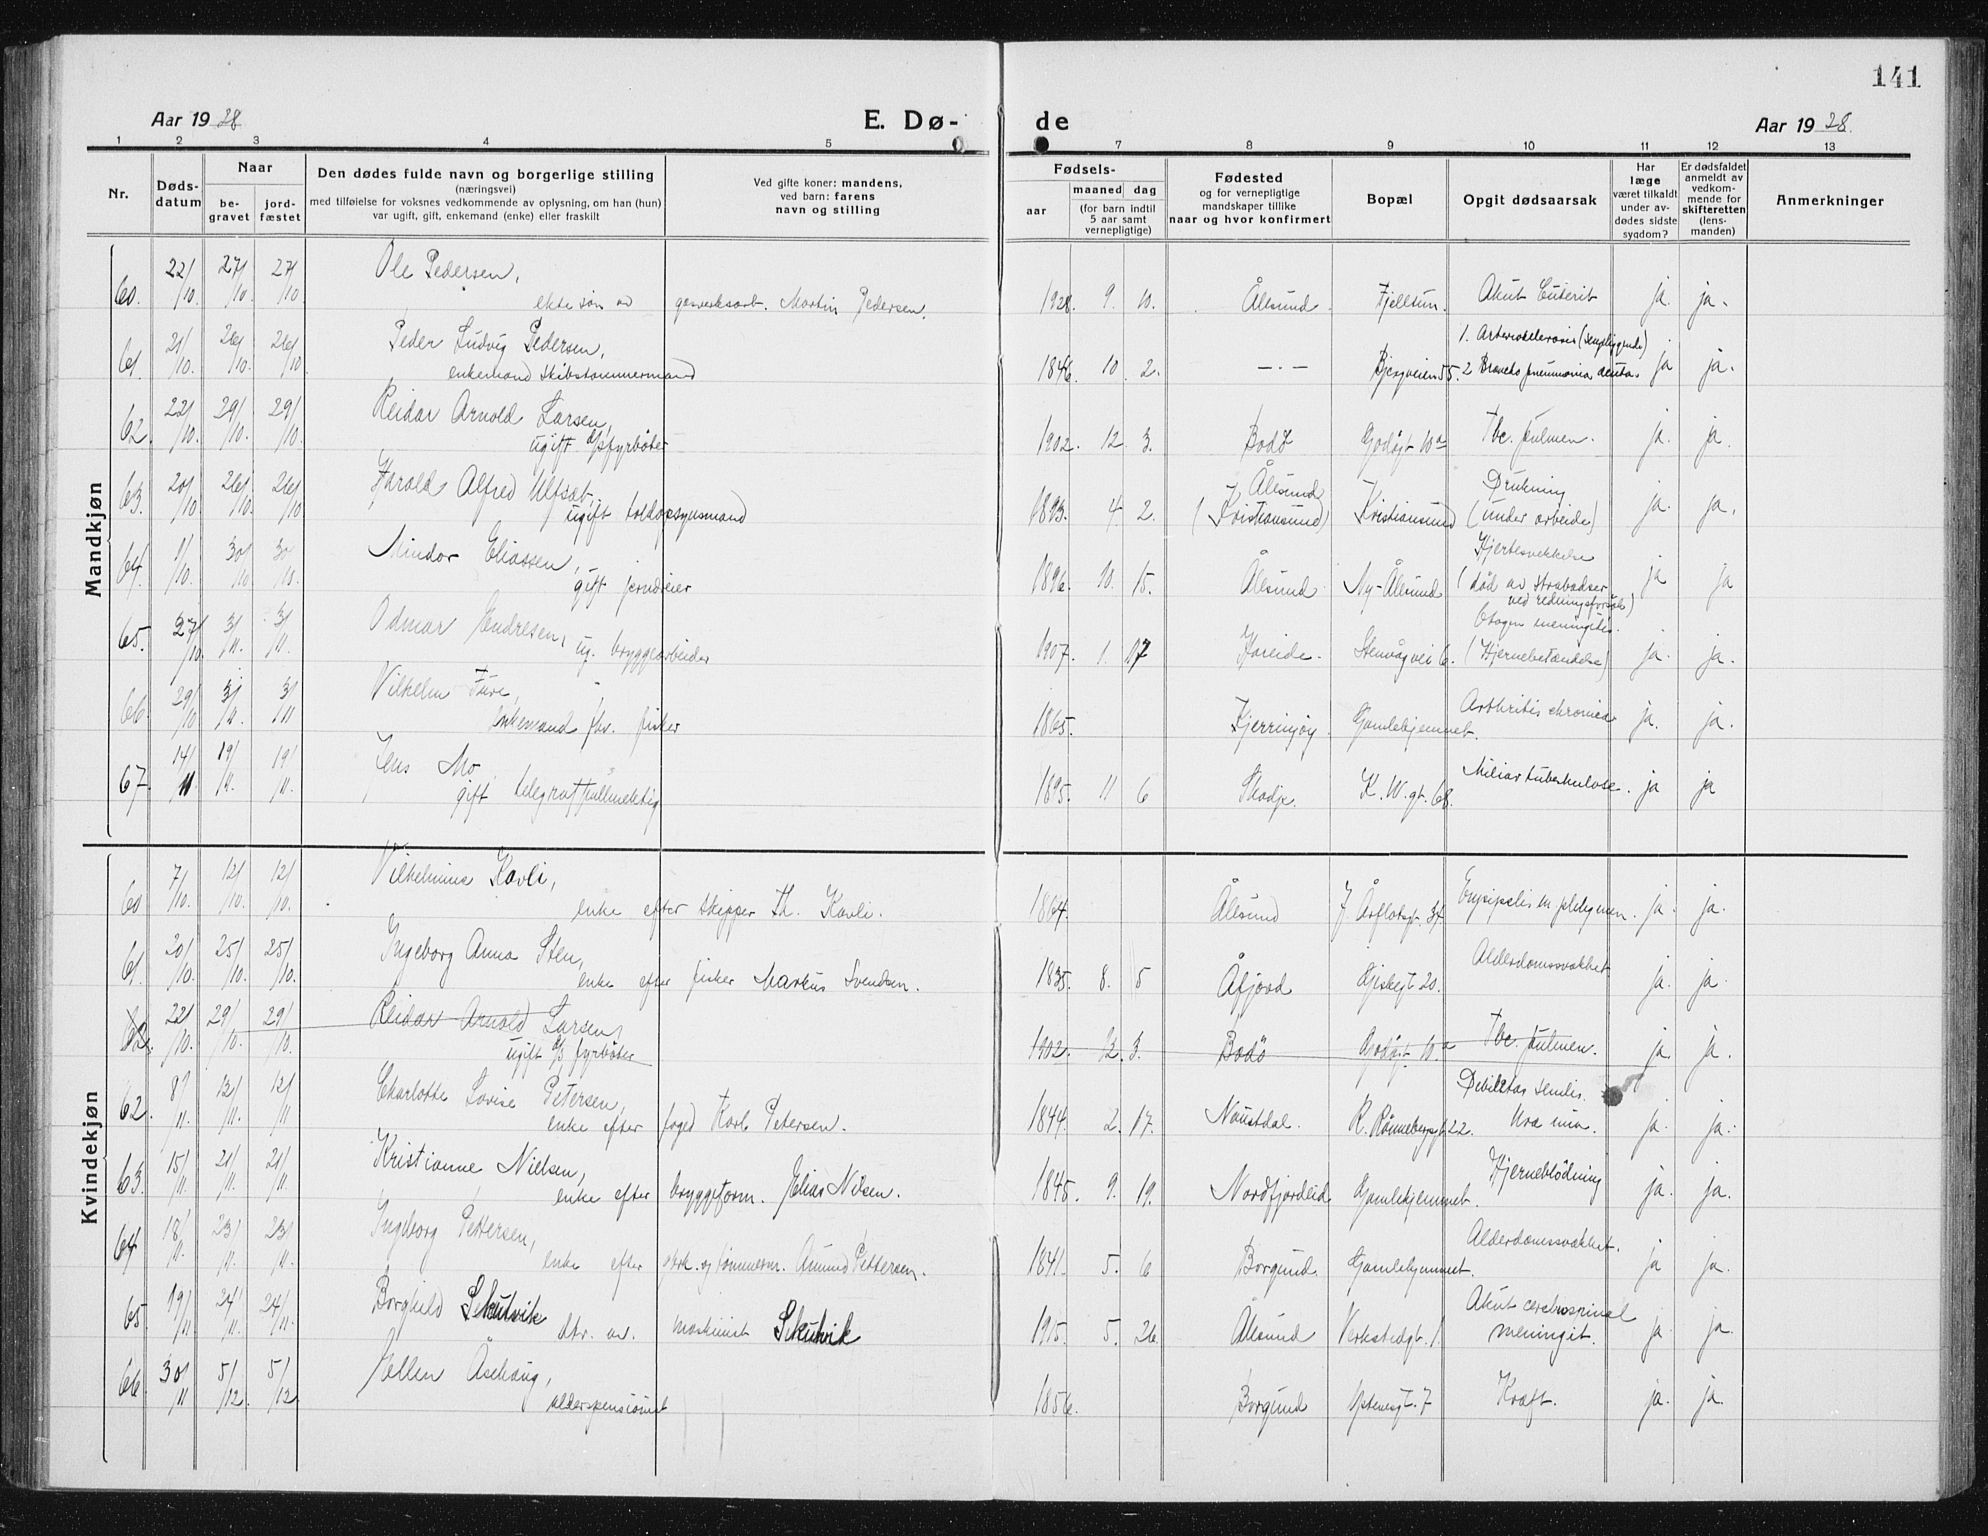 141
Aar 1928 E. Dø- de Aar 1928.
1 2 3 4 5 7 8 9 10 11 12 13
Nr.
Døds-
datum
Naar
be-
gravet
jord-
fæstet
Den dødes fulde navn og borgerlige stilling
(næringsvei)
med tilføielse for voksnes vedkommende av oplysning, om han (hun)
var ugift, gift, enkemand (enke) eller fraskilt
Ved gifte koner: mandens,
ved barn: farens
navn og stilling
Fødsels-
aar
maaned dag
(for barn indtil
5 aar samt
vernepligtige)
Fødested
og for vernepligtige
mandskaper tillike
naar og hvor konfirmert
Bopæl
Opgit dødsaarsak
Har
læge
været tilkaldt
under av-
dødes sidste
sygdom?
Er dødsfaldet
anmeldt av
vedkom-
mende for
skifteretten
(lens-
manden)
Anmerkninger
Mandkjøn
60. 22/10. 27/10. 27/10 Ole Pedersen,
ekte søn av gasverksarb. Martin Pedersen. 1928. 9. 10. Ålesund. Fjelltun. Akut Enterit ja. ja.
61. 21/10. 26/10. 26/10. Peder Ludvig Pedersen,
enkemand skibstømmermand 1846. 10. 2. — · —
1. Arteriosklerosis
2 pneumonia ja ja.
62. 22/10. 29/10. 29/10. Reidar Arnold Larsen,
ugift fyrbøter 1902. 12. 3. Bodø Godøgt 10a Tbc. pulmon. ja. ja.
63. 20/10. 26/10. 26/10 Harold Alfred
ugift toldopsynsmand 1893. 4. 2. Ålesund
(Kristiansund) Kristiansund Drukning
(under arbeide) ja. ja.
64. 30/10 30/10. Mindor Eliassen,
gift 1896. 10. 15. Ålesund Ny-Ålesund Hjertesvekkelse
(død av strabadser
ved redningsforsøk) ja ja
65. 27/10. 3/11. 3/11. Odmar Endresen,
ug. bryggearbeider 1907. 1. 17 Hareide. Stenvågvei 6. Otogen meningitis.
(Hjernebetændelse) ja. ja.
66. 29/10 3/11. 3/11 Vilhelm Fure,
enkemand fhv. fisker 1865. Kjerringøy Gamlehjemmet. Arthritis chronica ja. ja.
67. 14/11 19/11. 19/11. Jens Mo
gift telegraffuldmektig 1895. 11 6 Skodje. K. W. gt. 68. Miliærtuberkulose. ja ja
Kvindekjøn
60 7/10. 12/10. 12/10. Vilhelmine Kavli,
enke efter skipper Th. Kavli. 1864. Ålesund J. Aarflotsgt. 34 ja. ja.
61. 20/10. 25/10. 25/10. Ingeborg Anna Sten,
enke efter fisker Markus Svendsen. 1835. 8. 5 Åfjord Gjskegt 20. Alderdomssvakhet ja. ja.
62. 22/10. 29/10. 29/10. Reidar Arnold Larsen,
ugift fyrbøter 1902. 12. 3. Bodø Godøgt. 10.a Tbc. pulmon. ja. ja.
62. 8/11. 12/11. 12/11 Charlotte Lovise Petersen,
enke efter foged Karl Petersen. 1844. 2. 17. Naustdal. R. Rønnebergsgt 22. Debilitas senilis.
ja. ja.
63. 15/11. 21/11. 21/11. Kristianne Nielsen,
enke efter bryggeform. Elias Nilsen. 1845. 9. 19. Nordfjordeid Gamlehjemmet. Hjerneblødning ja. ja.
64 18/11. 23/11. 23/11. Ingeborg Pettersen,
enke efter gbrk. og tømmerm. Amund Pettersen. 1841. 5. 6 Borgund. Gamlehjemmet. Alderdomssvakhet. ja ja.
65. 19/11 24/11. 24/11. Borghild Sekulvik
dtr. av. maskinist Sekulvik 1915. 5. 26. Ålesund Verkstedgt. 1. Akut cerebrospinal
meningit. ja ja.
66 30/11 5/12. 5/12 Ellen Åsehaug,
alderspensionist 1856. Borgund Kraft. ja. ja.